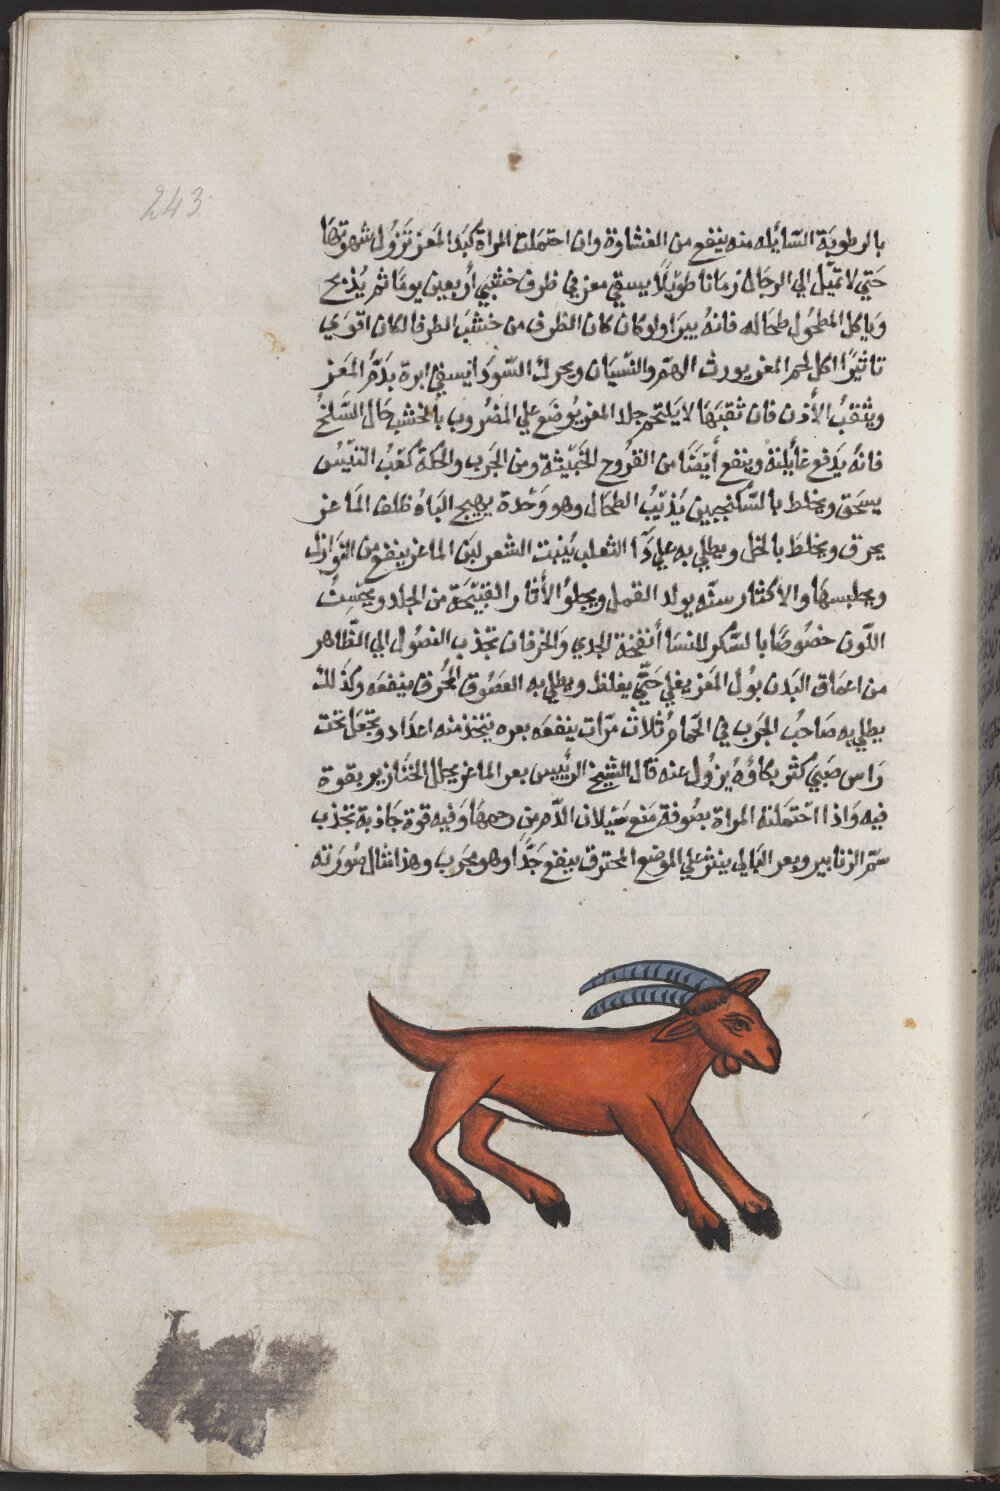 243
بالرطوبَة السَّايله منه ينفع من الغشاوة وان احتملت المراة كبَد المَعز تَزُول شهوتهَا
حَتي لا تميَّل الي الرجَال زمَانا طوَيلًا يسقي معز في ظرف خشبَي أربعين يومًا ثم يُذبح
وَياكل المطحُول طحَاله فانهُ يبرَا ولو كان كان الظرف من خشبَ الطرفا لكان اقوَي
تاثيرًا اكل لحم المعز يورث الهمّ والنّسيَان ويحرك السَّودَا يسقي ابرة بدَم المَعز
ويثقبُ الأُذن فان ثقبَهَا لا يَلتحم جلد المعز يُوضَع علي المضرُوب بالخشب حَال السَّلخُ
فانهُ يَدفع غايلته وينفع أيضًا من القرُوح الخَبيَّثة ومن الجَرب والحكة كعبُ التيّسُ
يسحَق ويخلط بالسَّكنجبين يُذيّبُ الطحَال وهو وَحْدة يهيج البَاه ظلف المَاعز
يحرق ويخلطَ بالخل ويطلي به علي دَّا الثعلب يُنبت الشعر لبَن الماعز ينفع من النوَازل
ويحلبسهَا والاكثار منّه يولد القمل ويجلوُ الأثار القبيّحَة من الجلد ويحّسنُ
اللّون خصُوصًا بالسّكر للنسَا أنفخة الجدي وَالخرفان تجذب النصُول الي الظّاهر
من اعماق البَدن بوُل المَعز يغلي حَتّي يغلظ ويطلي به العضُوّ المحُرق ينفعَه وكذَلك
يطلي به صَاحبُ الجَرب في الحّمام ثلاث مرّات ينفعَه بعره يتخذ منه اعدَاد وتجعَل تحت
رَاس صَبَي كثر بكاؤهُ يزُول عنه قال الشيخ الرئيس بعر الماعز يحلل الخنازير بقوة
فيه وَاذا احتملته المراة بصُوفة مَنع سَيلان الدَّم من رحمهَا وَفيه قوة جَاذبة تجذب
سَمّ الزنابير وبعر البَالي ينثر علي الموضع المحترق ينفع جَدًّا وهو مجرَب وهذا مثال صُورَته